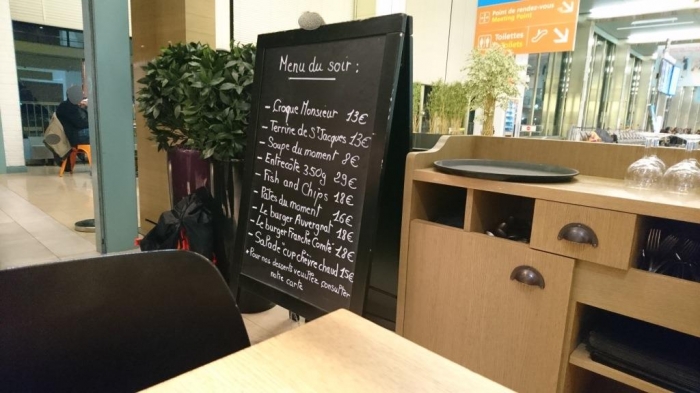 Point de rendez-vous
Meeting Point
Toilettes
Toilets
Menu du soir :
- Croque Monsieur 13€
- Terrine de St Jacques 13€
- Soupe du moment 8€
- Entrecôte 350g 29€
- Fish and Chips 18€
- Pates du moment 16€
- Le burger Auvergnat 18€
- Le burger Franche Comté 18€
- Salade "cup chèvre chaud 15€
* Pour nos desserts veuillez consulter
notre carte